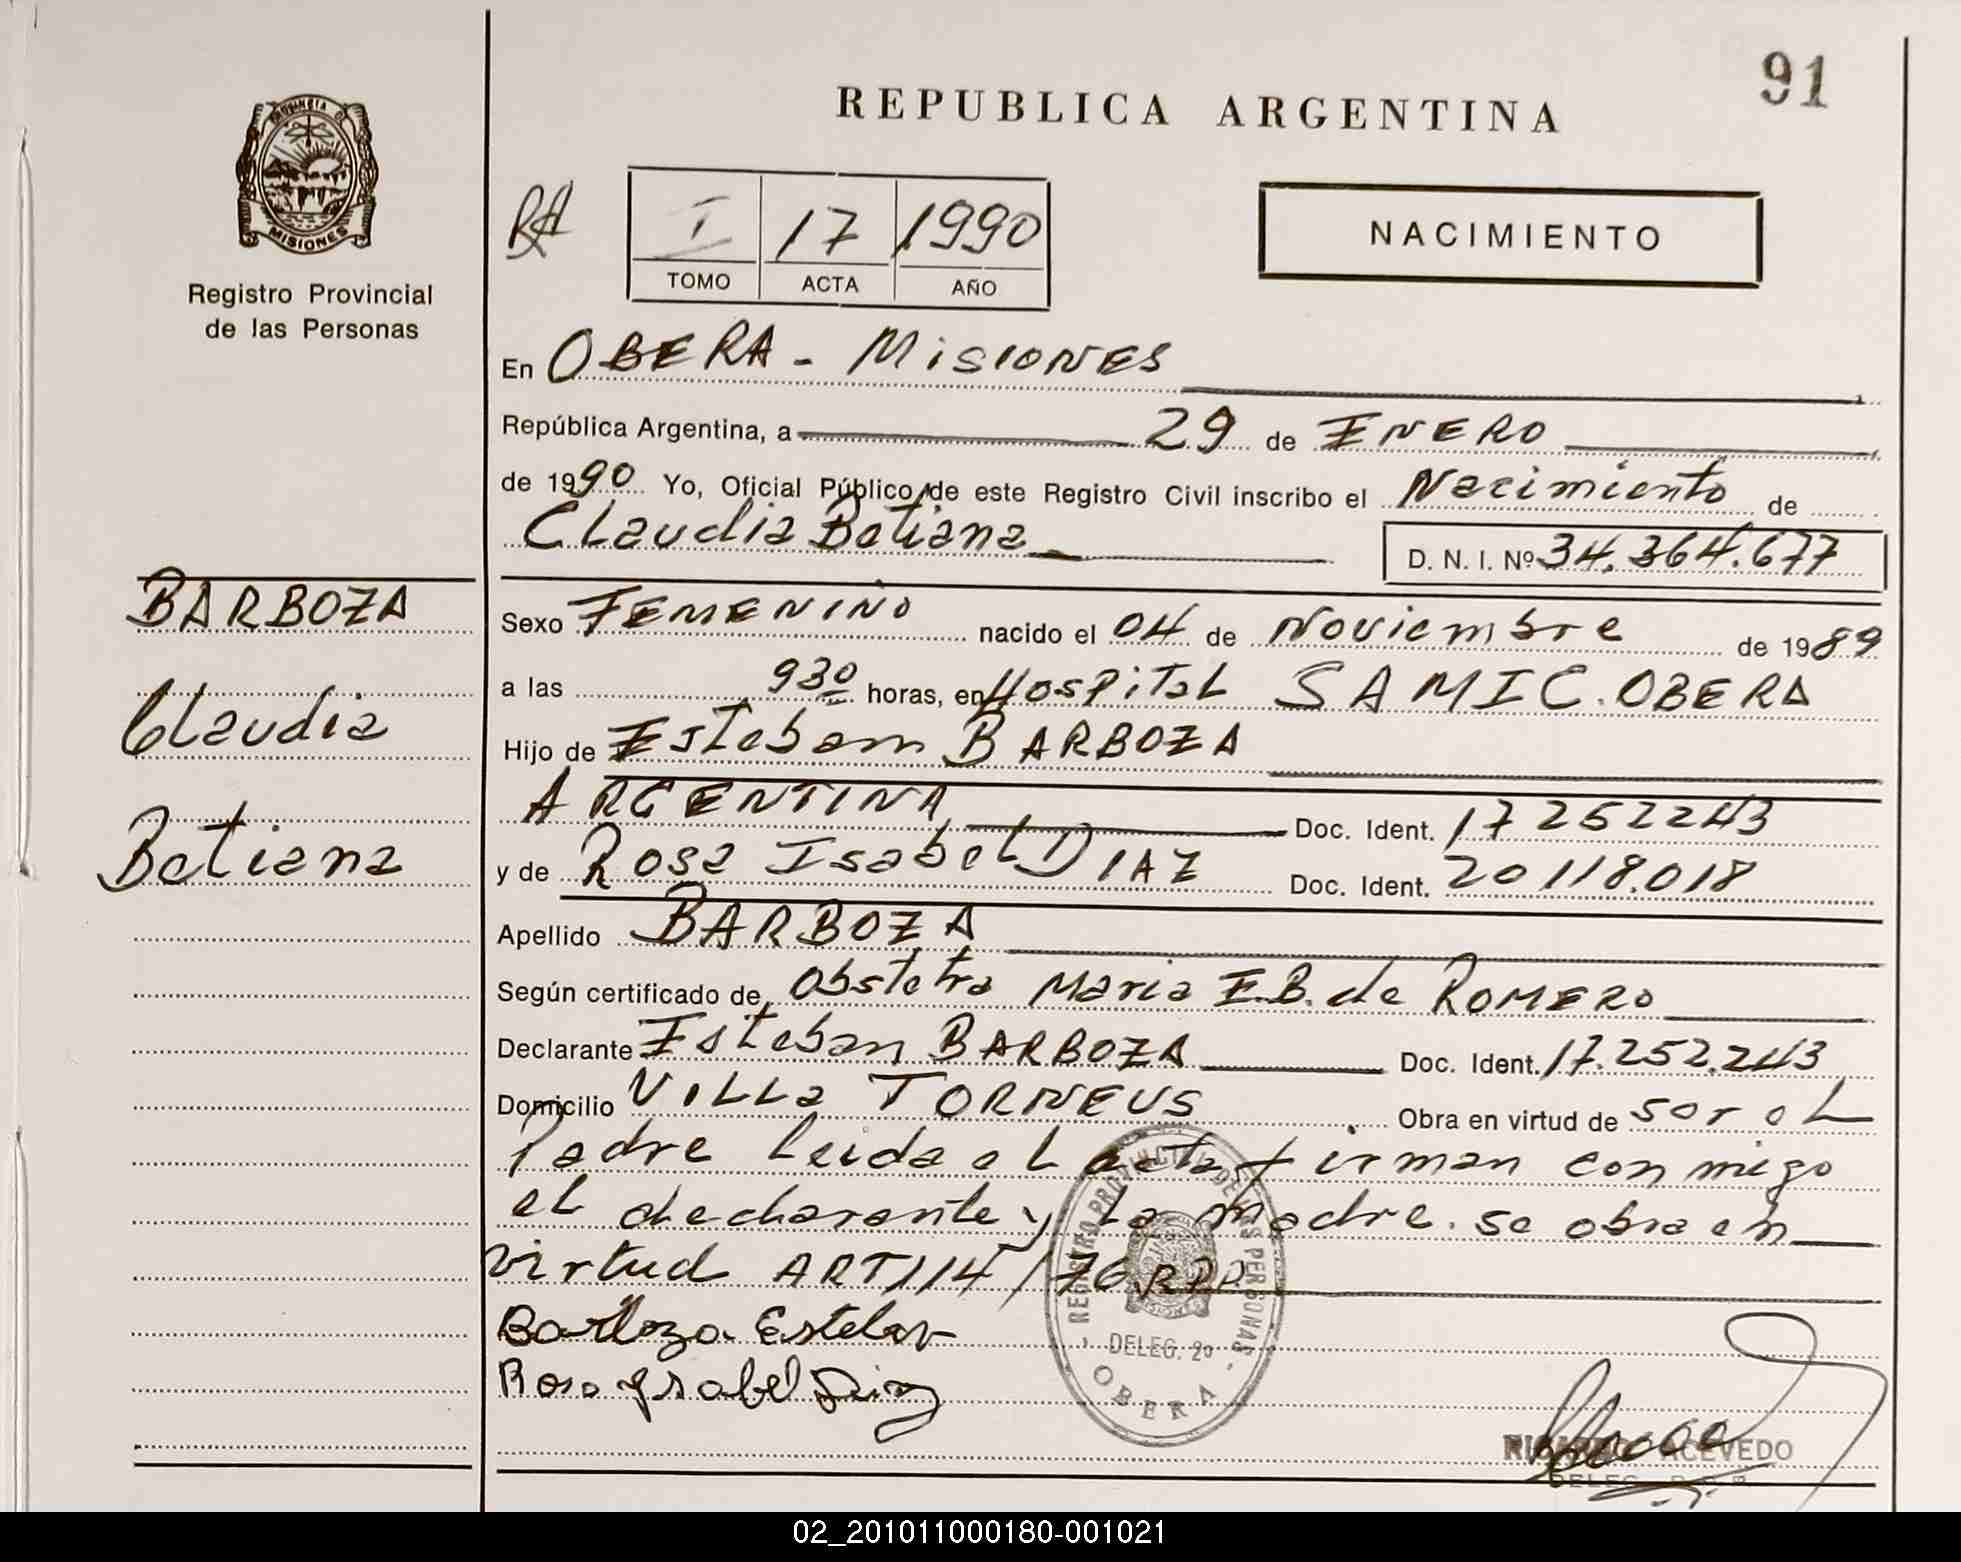 91
REPUBLICA ARGENTINA
PROVINCIA DE
MISIONES
Registro Provincial
de las Personas
I 17 1990
TOMO ACTA AÑO
NACIMIENTO
En OBERA - MISIONES
República Argentina, a 29 de ENERO
de 1990 Yo, Oficial Público de este Registro Civil inscribo el Nacimiento de
Claudia Betiana D. N. I. Nº 34.364.677
BARBOZA
Claudia
Betiana
Sexo FEMENINO nacido el 04 de Noviembre de 1989
a las 930 horas, en Hospital SAMIC. OBERA
Hijo de Esteban BARBOZA
ARGENTINA Doc. Ident. 17 252243
y de Rosa Isabel DIAZ Doc. Ident. 20118.018
Apellido BARBOZA
Según certificado de, Obstetra Maria E.B. de ROMERO
Declarante Esteban BARBOZA Doc. Ident. 17.252.243
Domicilio Villa TORNEUS Obra en virtud de sor el
Padre Leida el acta firman conmigo
el declarante y la madre. se obra en
virtud ART 114/76 RPP
Barboza Esteban
Rosa Ysabel Diaz
REGISTRO PROVINCIAL DE LAS PERSONAS
DELEG. 2º
OBERA
RICARDO ACEVEDO
DELEG. R.P.P.
02_201011000180-001021